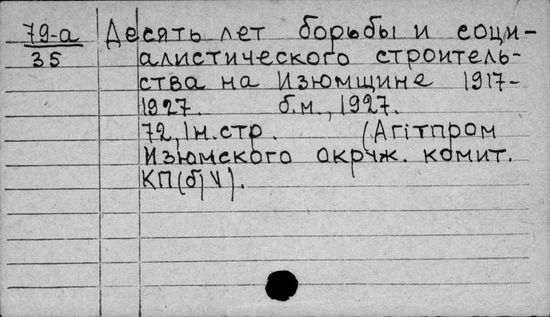 79-а
35
Десять лет борьбы и соци-
алистического строитель-
ства на Изюмщине 1917-
1927. б.м., 1927.
72, 1н.стр. (Агітпром
Изюмского окрчж. комит.
КП(б)У).